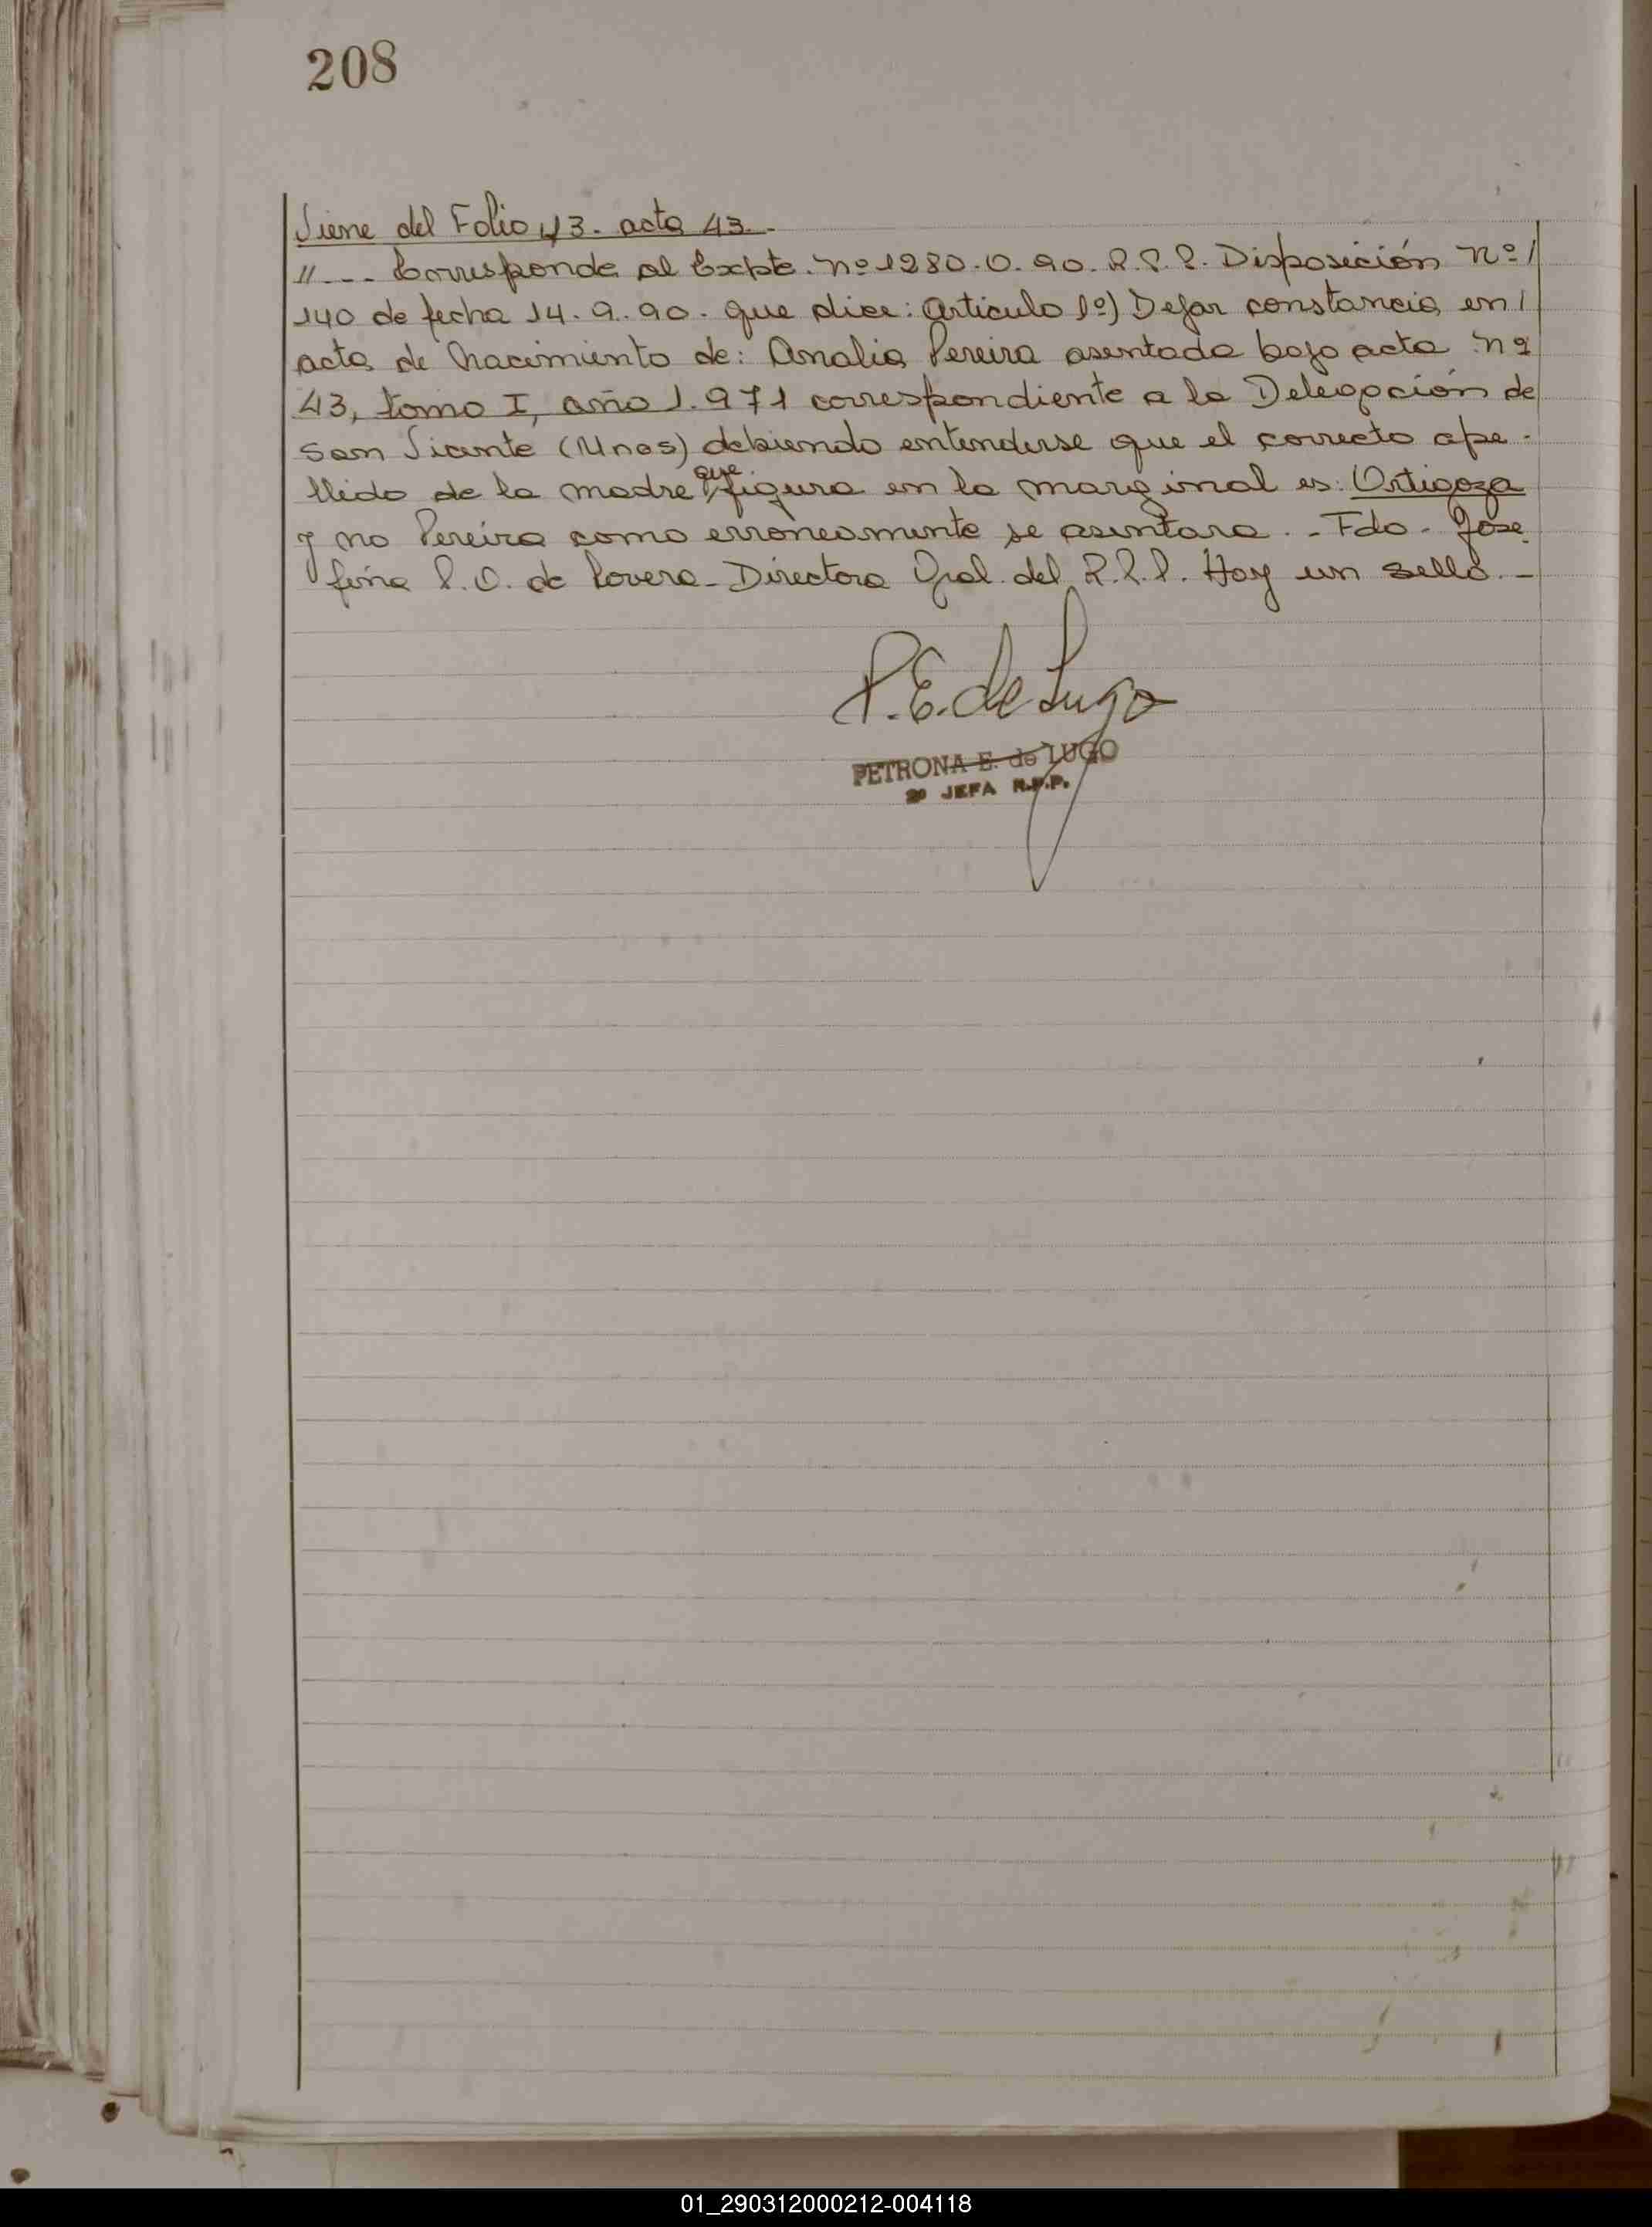 208
Viene del Folio 43. acta 43.-
"--- Corresponde al Expte. nº 1280.O.90. R.P.P. Disposición nº/
140 de fecha 14.9.90. que dice: Artículo 1º) Dejar constancia en/
acta de nacimiento de: Analia Pereira asentada bajo acta nº
43, tomo I, año 1.971 correspondiente a la Delegación de
San Vicente (Mnes) debiendo entenderse que el correcto ape-
llido de la madre que figura en la marginal es: Ortigoza
y no Pereira como erroneamente se asentara.- Fdo- Jose
fina P. O. de Lovera- Directora Gral. del R.P.P. Hay un sello.-
P.E. de Lugo
PETRONA E. de LUGO
2º JEFA R.P.P.
01_290312000212-004118